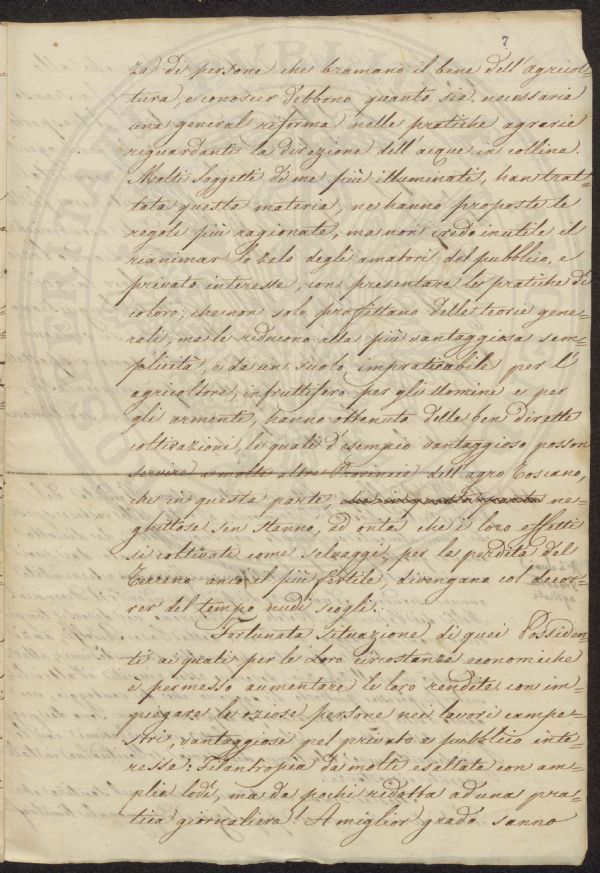 7
za di persone che bramano il bene dell'agricol=
tura, e conoscer debbono quanto sia necessaria
una general riforma nelle pratiche agrarie
riguardanti la direzione dell'acque in collina.
Molti soggetti di me più illuminati, han trat=
tata questa materia, ne hanno proposte le
regole più ragionate, ma non credo inutile il
rianimar lo zelo degli amatori del pubblico, e
privato interesse, con presentare le pratiche di
coloro, che non solo profittano delle teorie gene=
rali, ma le riducono alla più vantaggiosa sem=
plicità, e da un suolo impraticabile per l'
agricoltore, infruttifero per gli Uomini e per
gli armenti, hanno ottenuto delle ben dirette
coltivazioni, le quali d'esempio vantaggioso posson
servire a molte altre Provincie dell'agro Toscano,
che in questa parte, che in questa parte ne=
ghittose sen stanno, ad onta che i loro effetti
si coltivati come selvaggi, per la perdita del
Terreno anco il più fertile, divengano col decor=
rer del tempo nudi scogli.
Fortunata situazione di quei Possiden=
ti ai quali per le Loro circostanze economiche
è permesso aumentare le loro rendite con im=
piegare le oziose persone nei lavori campe=
stri, vantaggiosi pel privato e pubblico inte=
resse: Filantropia da molti esaltata con am=
plie lodi, ma da pochi ridotta ad una pra=
tica giornaliera! A miglior grado sanno